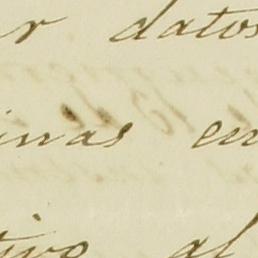 r datos
inas en
tivo al